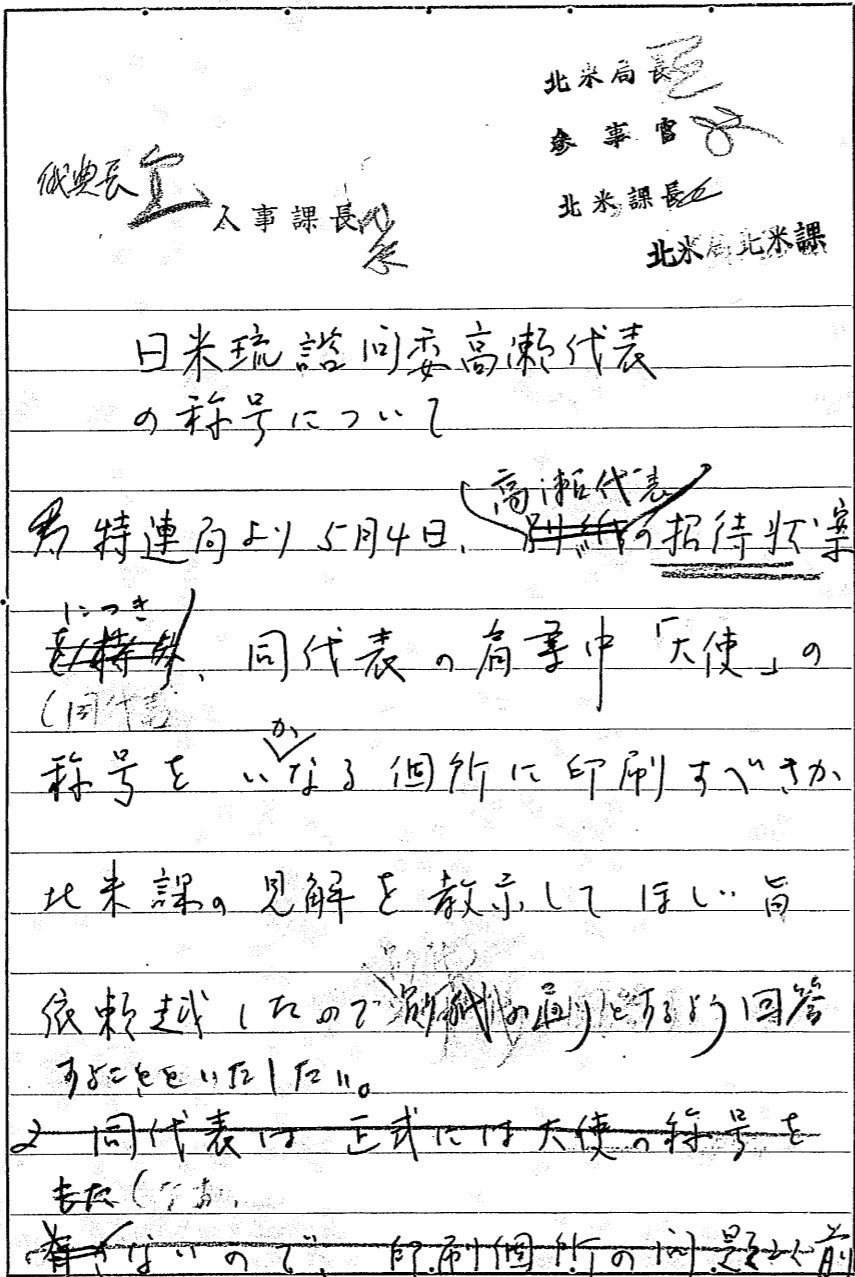 北米局長
参事官
北米課長
北米局北米課
儀典長
人事課長
日米琉諮問委高瀬代表
の称号について
高瀬代表
特連局より5月4日、別紙の招待状案
につき
、同代表の肩書中「大使」の
(同代表
称号をいかなる個所に印刷すべきか
北米課の見解を教示してほしい旨
依頼越したので別紙の通りとするよう回答
することといたしたい。
2 同代表は正式には大使の称号を
ないので、印刷個所の問題以前